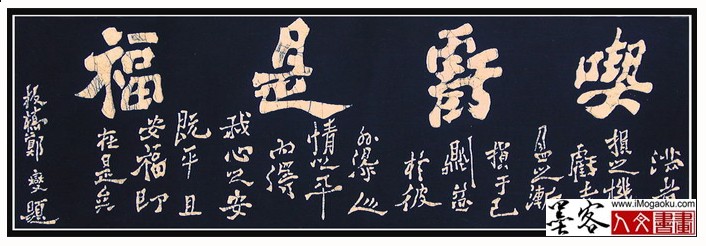 喫虧是福
滿者
損之機
虧者
盈之漸
損于己
則盈
於彼
外得人
情之平
内得
我心之安
既平且
安福即
在是矣
板橋鄭燮題
墨客
www.iMogaoku.com
人文書畫